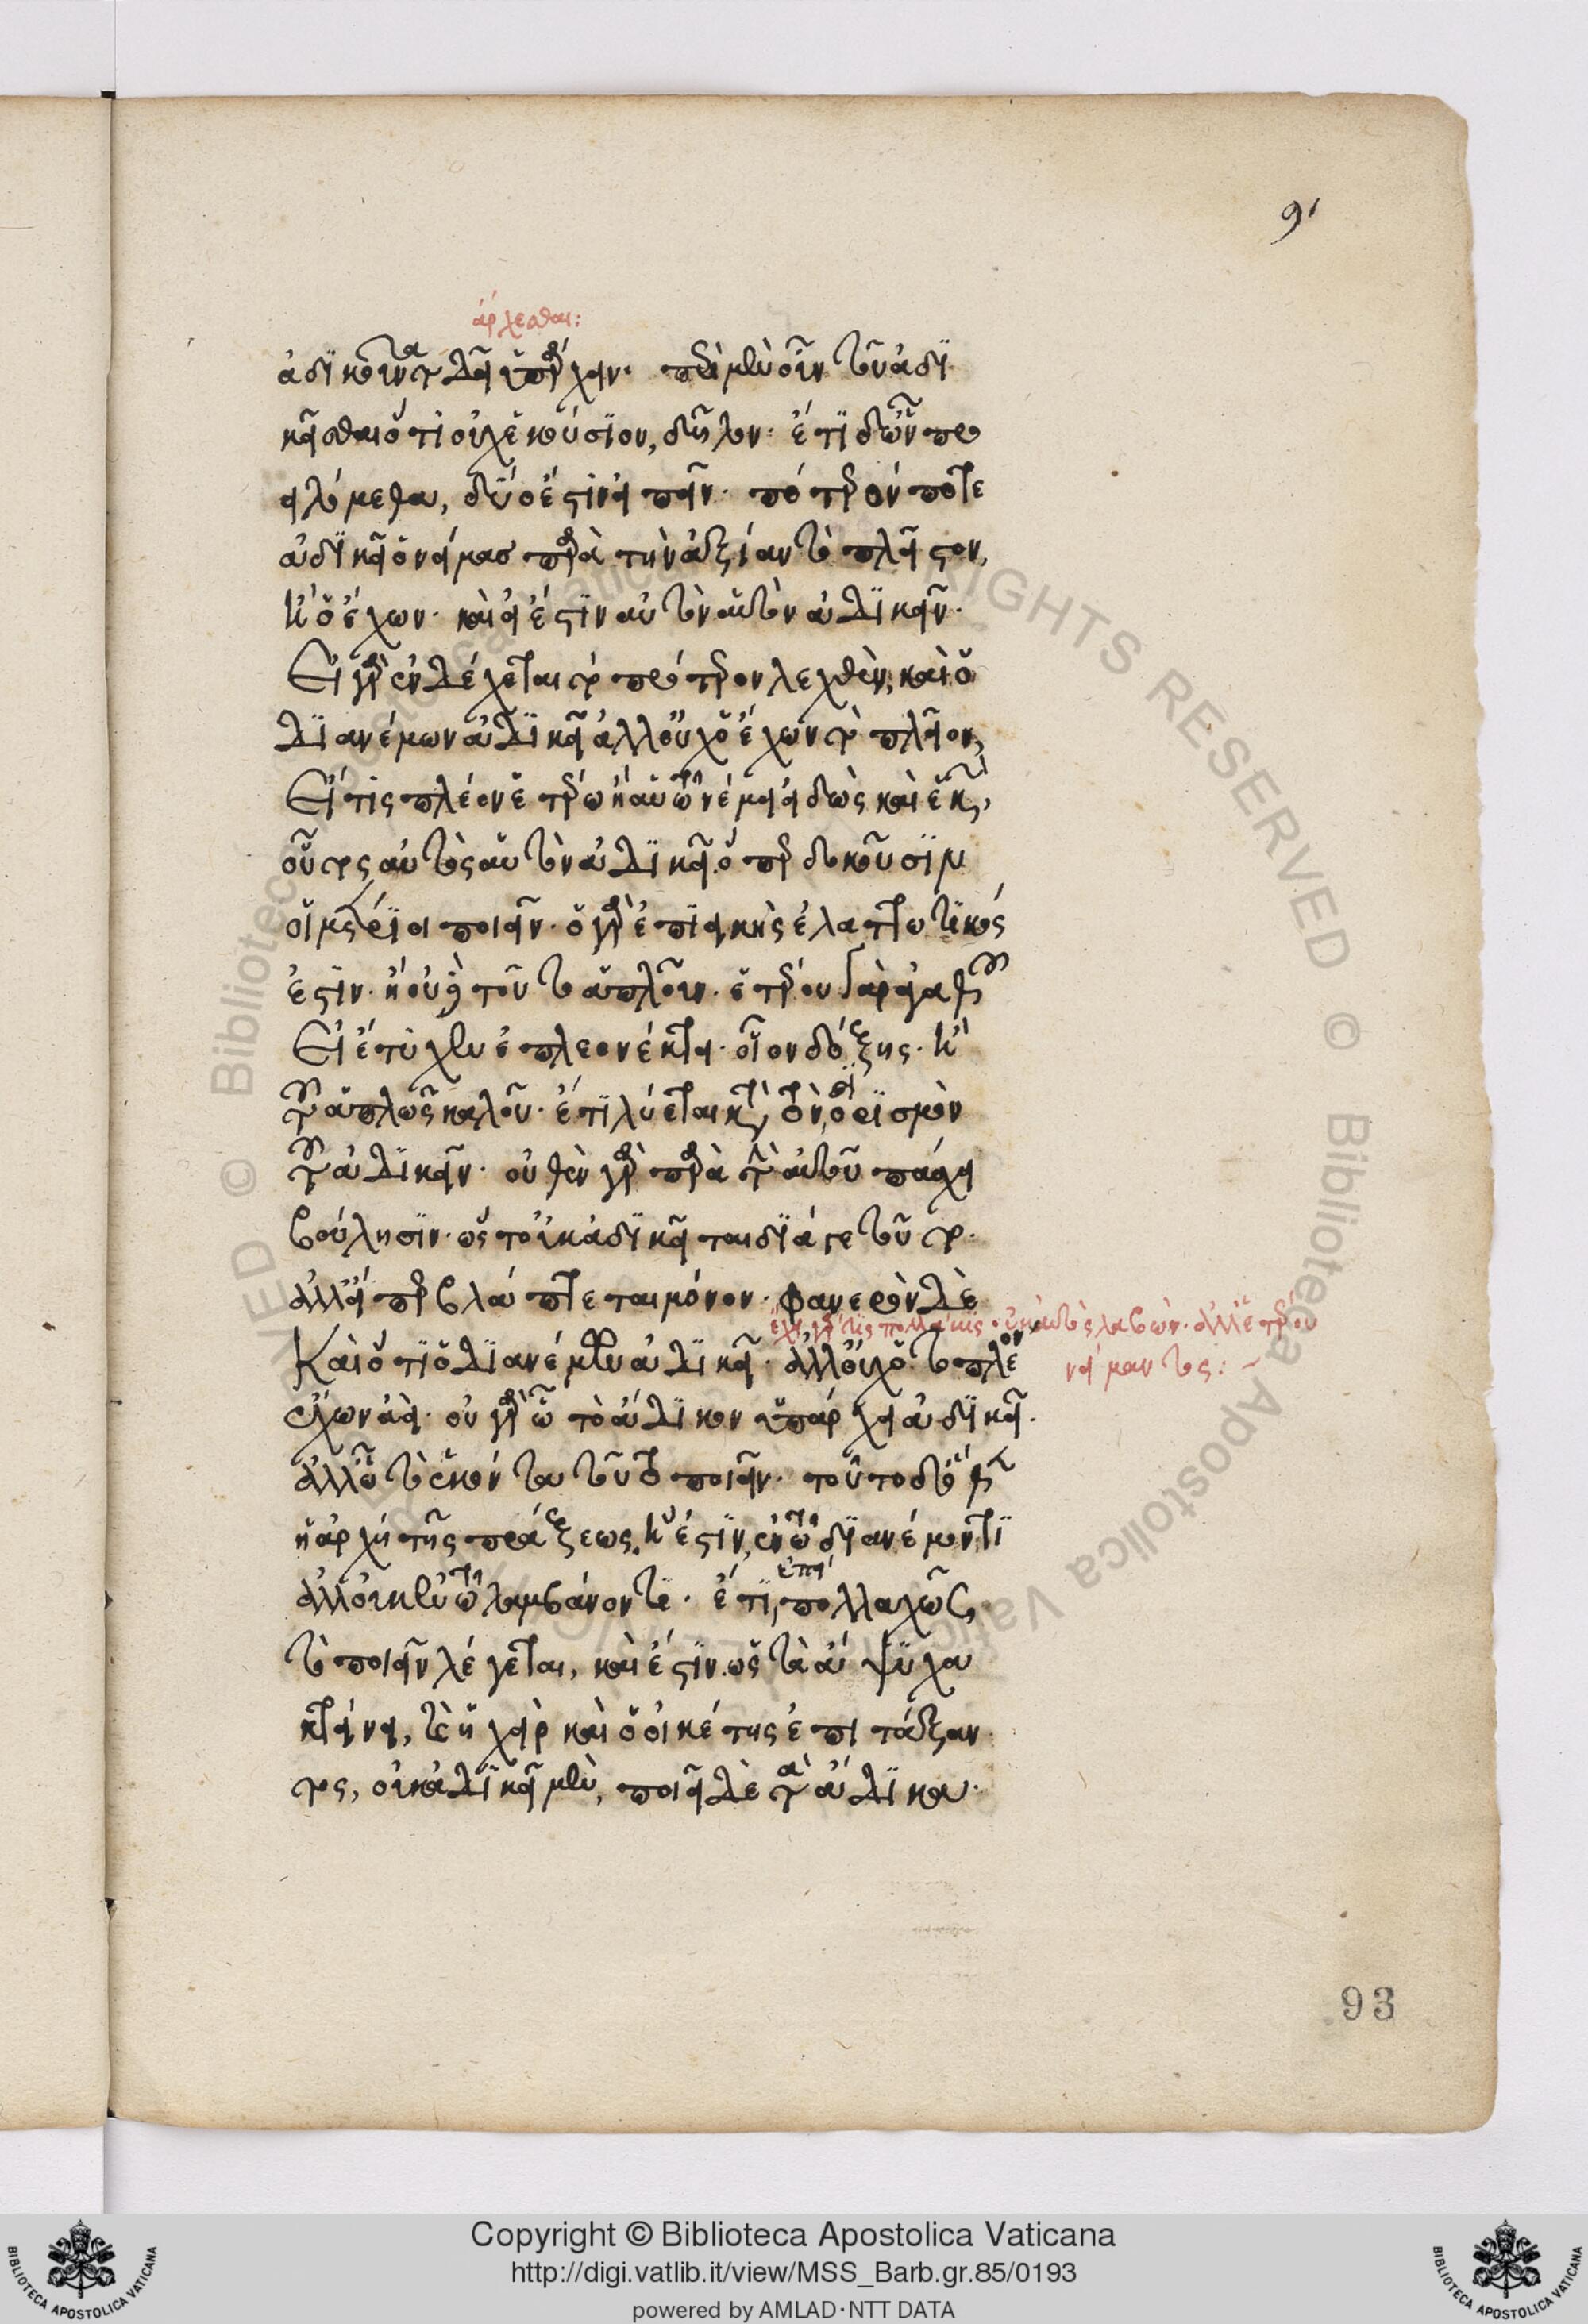 91
ἄρχεσθαι:
ἀδικοῦντα δεῖ ὑπάρχειν· περὶ μὲν οὖν τοῦ ἀδι
κεῖσθαι ὅτι οὐχ ἑκούσιον, δῆλον· ἔτι δ' ὧν προ
ειλόμεθα, δύο ἔστιν εἰπεῖν· πότερόν ποτε
ἀδικεῖ ὁ νείμας παρὰ τὴν ἀξίαν τὸ πλεῖστον,
ἢ ὁ ἔχων· καὶ εἰ ἔστιν αὐτὸν αὑτὸν ἀδικεῖν·
Εἰ γὰρ ἐνδέχεται τὸ πρότερον λεχθὲν, καὶ ὁ
διανέμων ἀδικεῖ ἀλλ' οὐχ ὁ ἔχων τὸ πλεῖον,
Εἴ τις πλέον ἑτέρῳ ἢ αὑτῷ νέμει εἰδὼς καὶ ἑκὼν,
οὗτος αὐτὸς αὑτὸν ἀδικεῖ. ὅπερ δοκοῦσιν
οἱ μέτριοι ποιεῖν· ὁ γὰρ ἐπιεικὴς ἐλαττωτικός
ἐστιν· ἢ οὐδὲ τοῦτο ἁπλοῦν· ἑτέρου γὰρ ἀγαθοῦ
Εἰ ἔτυχεν ἐπλεονέκτει· οἷον δόξης· ἢ
τοῦ ἁπλῶς καλοῦ· ἔτι λύεται κατὰ τὸν διορισμὸν
τοῦ ἀδικεῖν· οὐθὲν γὰρ παρὰ τὴν αὑτοῦ πάσχει
βούλησιν· ὥστε οὐκ ἀδικεῖται διά γε τοῦτο·
ἀλλ' εἴπερ βλάπτεται μόνον· φανερὸν δὲ
ἔχει γάρ τις πολλάκις· οὐκ αὐτὸς λαβὼν· ἀλλ' ἑτέρου
Καὶ ὅτι ὁ διανέμων ἀδικεῖ· ἀλλ' οὐχ ὁ τὸ πλέον
νείμαντος:
ἔχων ἀεὶ· οὐ γὰρ ᾧ τὸ ἄδικον ὑπάρχει ἀδικεῖ·
ἀλλ' ᾧ τὸ ἑκόντα τοῦτο ποιεῖν· τοῦτο δ' ὅθεν
ἡ ἀρχὴ τῆς πράξεως, ἥ ἐστιν, ἐν τῷ διανέμοντι
ἀλλ' οὐκ ἐν τῷ λαμβάνοντι· ἔτι, ἐπεὶ πολλαχῶς
τὸ ποιεῖν λέγεται, καὶ ἔστιν ὡς τὰ ἄψυχα
κτείνει, καὶ ἡ χεὶρ καὶ ὁ οἰκέτης ἐπιτάξαν
τος, οὐκ ἀδικεῖ μὲν, ποιεῖ δὲ τὰ ἄδικα·
93
Copyright © Biblioteca Apostolica Vaticana
http://digi.vatlib.it/view/MSS_Barb.gr.85/0193
powered by AMLAD·NTT DATA